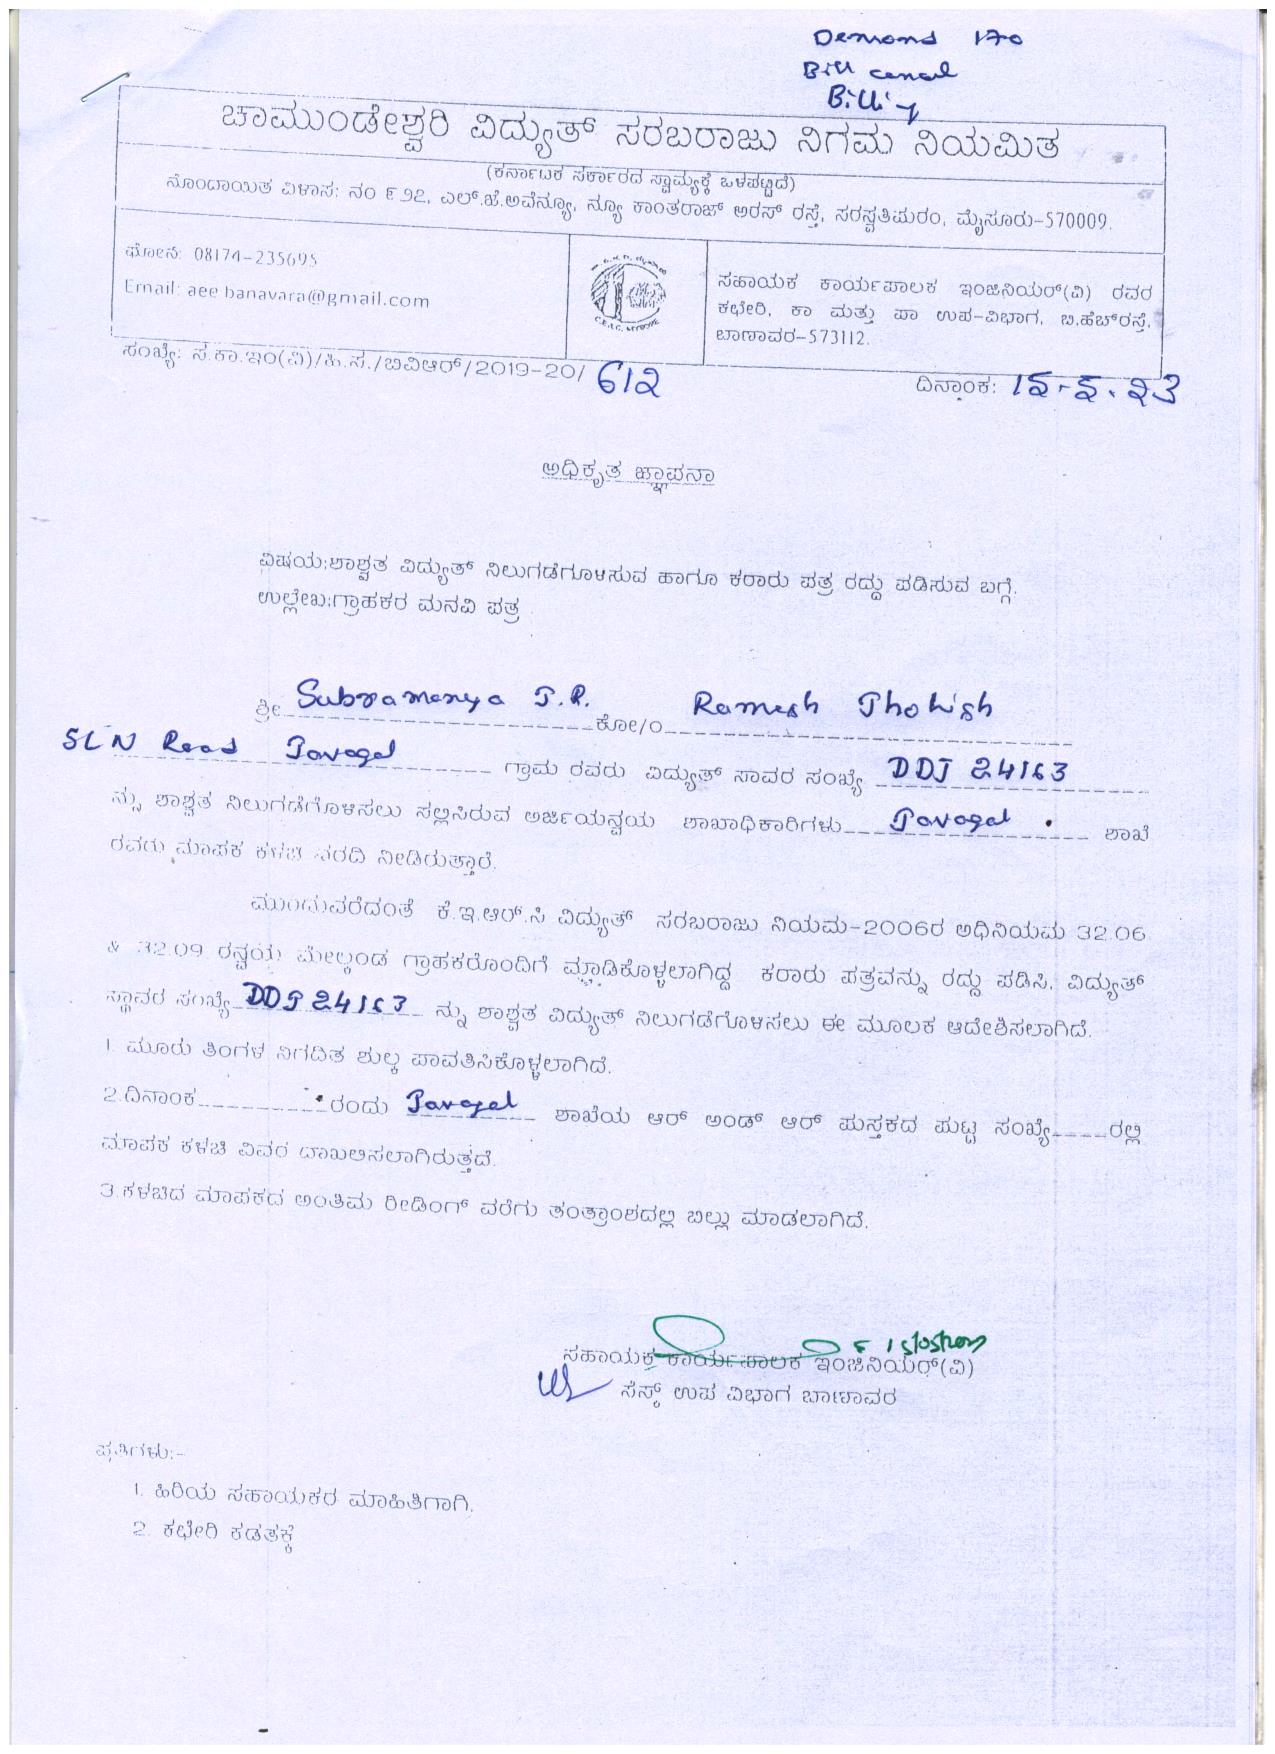 Demand 170
Bill cancel
Billing
ಚಾಮುಂಡೇಶ್ವರಿ ವಿದ್ಯುತ್ ಸರಬರಾಜು ನಿಗಮ ನಿಯಮಿತ
(ಕರ್ನಾಟಕ ಸರ್ಕಾರದ ಸ್ವಾಮ್ಯಕ್ಕೆ ಒಳಪಟ್ಟಿದೆ)
ನೊಂದಾಯಿತ ವಿಳಾಸ: ನಂ ೯೨೭, ಎಲ್.ಜೆ.ಅವೆನ್ಯೂ, ನ್ಯೂ ಕಾಂತರಾಜ್ ಅರಸ್ ರಸ್ತೆ, ಸರಸ್ವತಿಪುರಂ, ಮೈಸೂರು-570009.
ಫೋನ: 08174-235695
Email: aee.banavara@gmail.com
ಸಹಾಯಕ ಕಾರ್ಯಪಾಲಕ ಇಂಜಿನಿಯರ್(ವಿ) ರವರ
ಕಛೇರಿ, ಕಾ ಮತ್ತು ಪಾ ಉಪ-ವಿಭಾಗ, ಬಿ.ಹೆಚ್‌ರಸ್ತೆ,
ಬಾಣಾವರ-573112.
ಸಂಖ್ಯೆ: ಸ.ಕಾ.ಇಂ(ವಿ)/ಹಿ.ಸ./ಬಿವಿಆರ್/2019-20/ 612
ದಿನಾಂಕ: 15-5-23
ಅಧಿಕೃತ ಜ್ಞಾಪನಾ
ವಿಷಯ:ಶಾಶ್ವತ ವಿದ್ಯುತ್ ನಿಲುಗಡೆಗೊಳಿಸುವ ಹಾಗೂ ಕರಾರು ಪತ್ರ ರದ್ದು ಪಡಿಸುವ ಬಗ್ಗೆ.
ಉಲ್ಲೇಖ:ಗ್ರಾಹಕರ ಮನವಿ ಪತ್ರ
ಶ್ರೀ Subramanya J.R. ಕೋ/ಂ Ramesh
SLN Road Javagal ಗ್ರಾಮ ರವರು ವಿದ್ಯುತ್ ಸಾವರ ಸಂಖ್ಯೆ DDJ 24163
ನ್ನು ಶಾಶ್ವತ ನಿಲುಗಡೆಗೊಳಿಸಲು ಸಲ್ಲಿಸಿರುವ ಅರ್ಜಿಯನ್ವಯ ಶಾಖಾಧಿಕಾರಿಗಳು Javagal ಶಾಖೆ
ರವರು ಮಾಪಕ ಕಳಚಿ ವರದಿ ನೀಡಿರುತ್ತಾರೆ.
ಮುಂದುವರೆದಂತೆ ಕೆ.ಇ.ಆರ್.ಸಿ ವಿದ್ಯುತ್ ಸರಬರಾಜು ನಿಯಮ-2006ರ ಅಧಿನಿಯಮ 32.06
& 32.09 ರನ್ವಯ ಮೇಲ್ಕಂಡ ಗ್ರಾಹಕರೊಂದಿಗೆ ಮಾಡಿಕೊಳ್ಳಲಾಗಿದ್ದ ಕರಾರು ಪತ್ರವನ್ನು ರದ್ದು ಪಡಿಸಿ, ವಿದ್ಯುತ್
ಸ್ಥಾವರ ಸಂಖ್ಯೆ DDJ 24163 ನ್ನು ಶಾಶ್ವತ ವಿದ್ಯುತ್ ನಿಲುಗಡೆಗೊಳಿಸಲು ಈ ಮೂಲಕ ಆದೇಶಿಸಲಾಗಿದೆ.
1. ಮೂರು ತಿಂಗಳ ನಿಗದಿತ ಶುಲ್ಕ ಪಾವತಿಸಿಕೊಳ್ಳಲಾಗಿದೆ.
2.ದಿನಾಂಕ ರಂದು Javagal ಶಾಖೆಯ ಆರ್ ಅಂಡ್ ಆರ್ ಪುಸ್ತಕದ ಪುಟ್ಟ ಸಂಖ್ಯೆ ರಲ್ಲಿ
ಮಾಪಕ ಕಳಚಿ ವಿವರ ದಾಖಲಿಸಲಾಗಿರುತ್ತದೆ.
3.ಕಳಚಿದ ಮಾಪಕದ ಅಂತಿಮ ರೀಡಿಂಗ್ ವರೆಗು ತಂತ್ರಾಂಶದಲ್ಲಿ ಬಿಲ್ಲು ಮಾಡಲಾಗಿದೆ.
ಸಹಾಯಕ ಕಾರ್ಯಪಾಲಕ ಇಂಜಿನಿಯರ್(ವಿ)
ಸೆಸ್ಕ್ ಉಪ ವಿಭಾಗ ಬಾಣಾವರ
ಪ್ರತಿಗಳು:-
1. ಹಿರಿಯ ಸಹಾಯಕರ ಮಾಹಿತಿಗಾಗಿ.
2. ಕಛೇರಿ ಕಡತಕ್ಕೆ